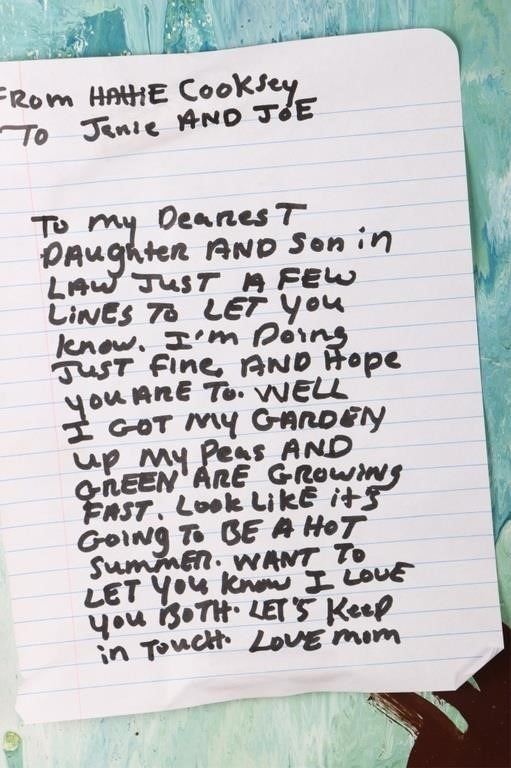 FROM HATTIE COOKSEY
TO Janie AND JOE
To my DeaResT
DAughteR AND Son in
LAW JusT A FEW
LiNEs To LET you
know. I'm Doing
JusT Fine, AND Hope
you ARE To. WELL
I GOT MY GARDEN
up My Peas AND
GREEN ARE GROWING
FAST. Look LikE it's
Going To BE A HOT
SummeR. WANT To
LET You Know I LOVE
you BOTH. LET'S Keep
in Touch. LOVE mom